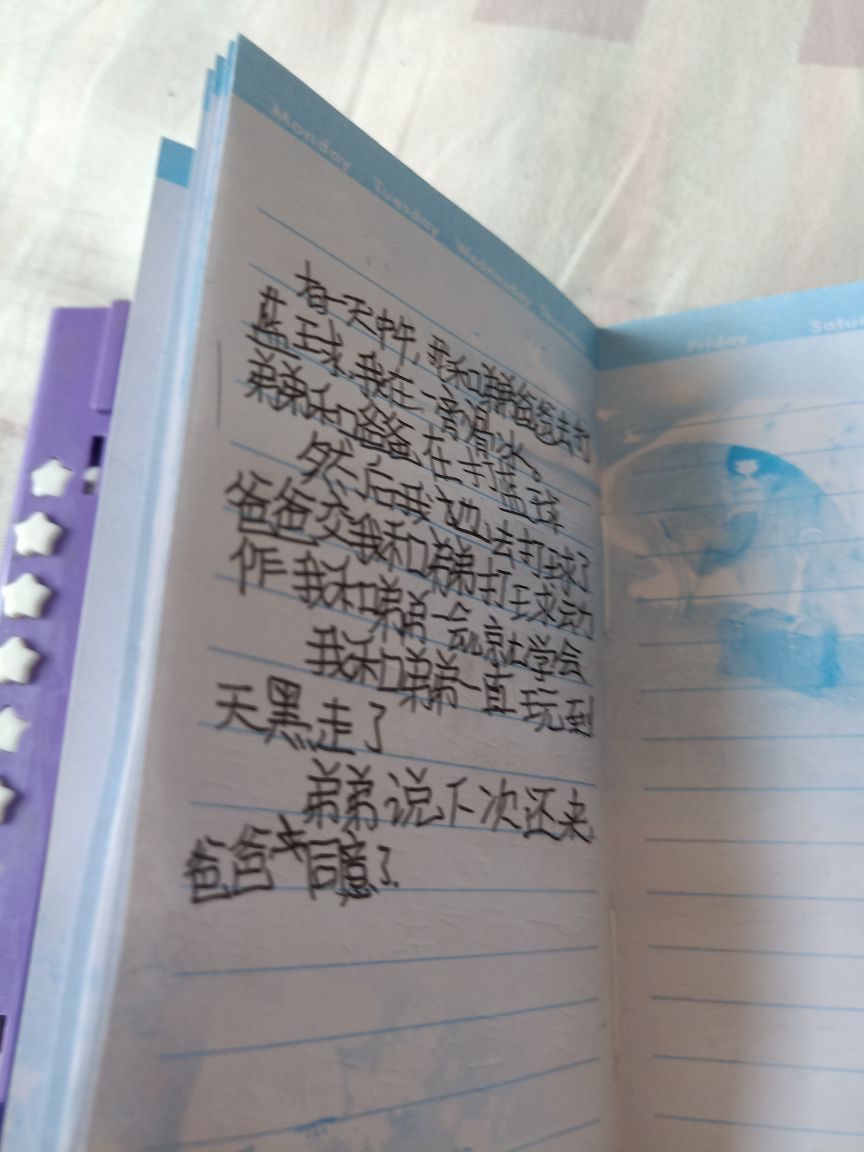 Monday Tuesday Wednesday Thursday
有一天中午,我和弟弟爸爸去打
蓝球,我在一旁滑冰。
弟弟和爸爸在打蓝球
然后我也去打球了
爸爸交我和弟弟打球动
作我和弟弟一会儿就学会
我和弟弟一直玩到
天黑走了
弟弟说下次还来,
爸爸同意了.
Friday Satu